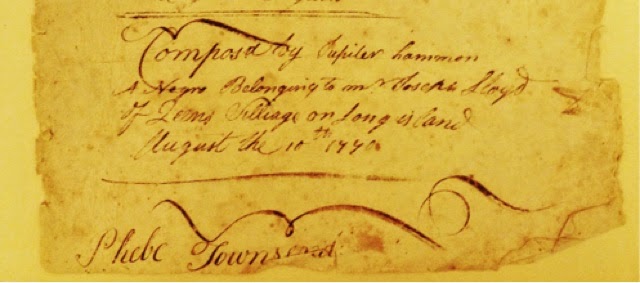 Composd by Jupiter hammon
A Negro Belonging to mr Joseph Lloyd
of Queens Village on Long island
August the 10th 1770
Phebe Townsend